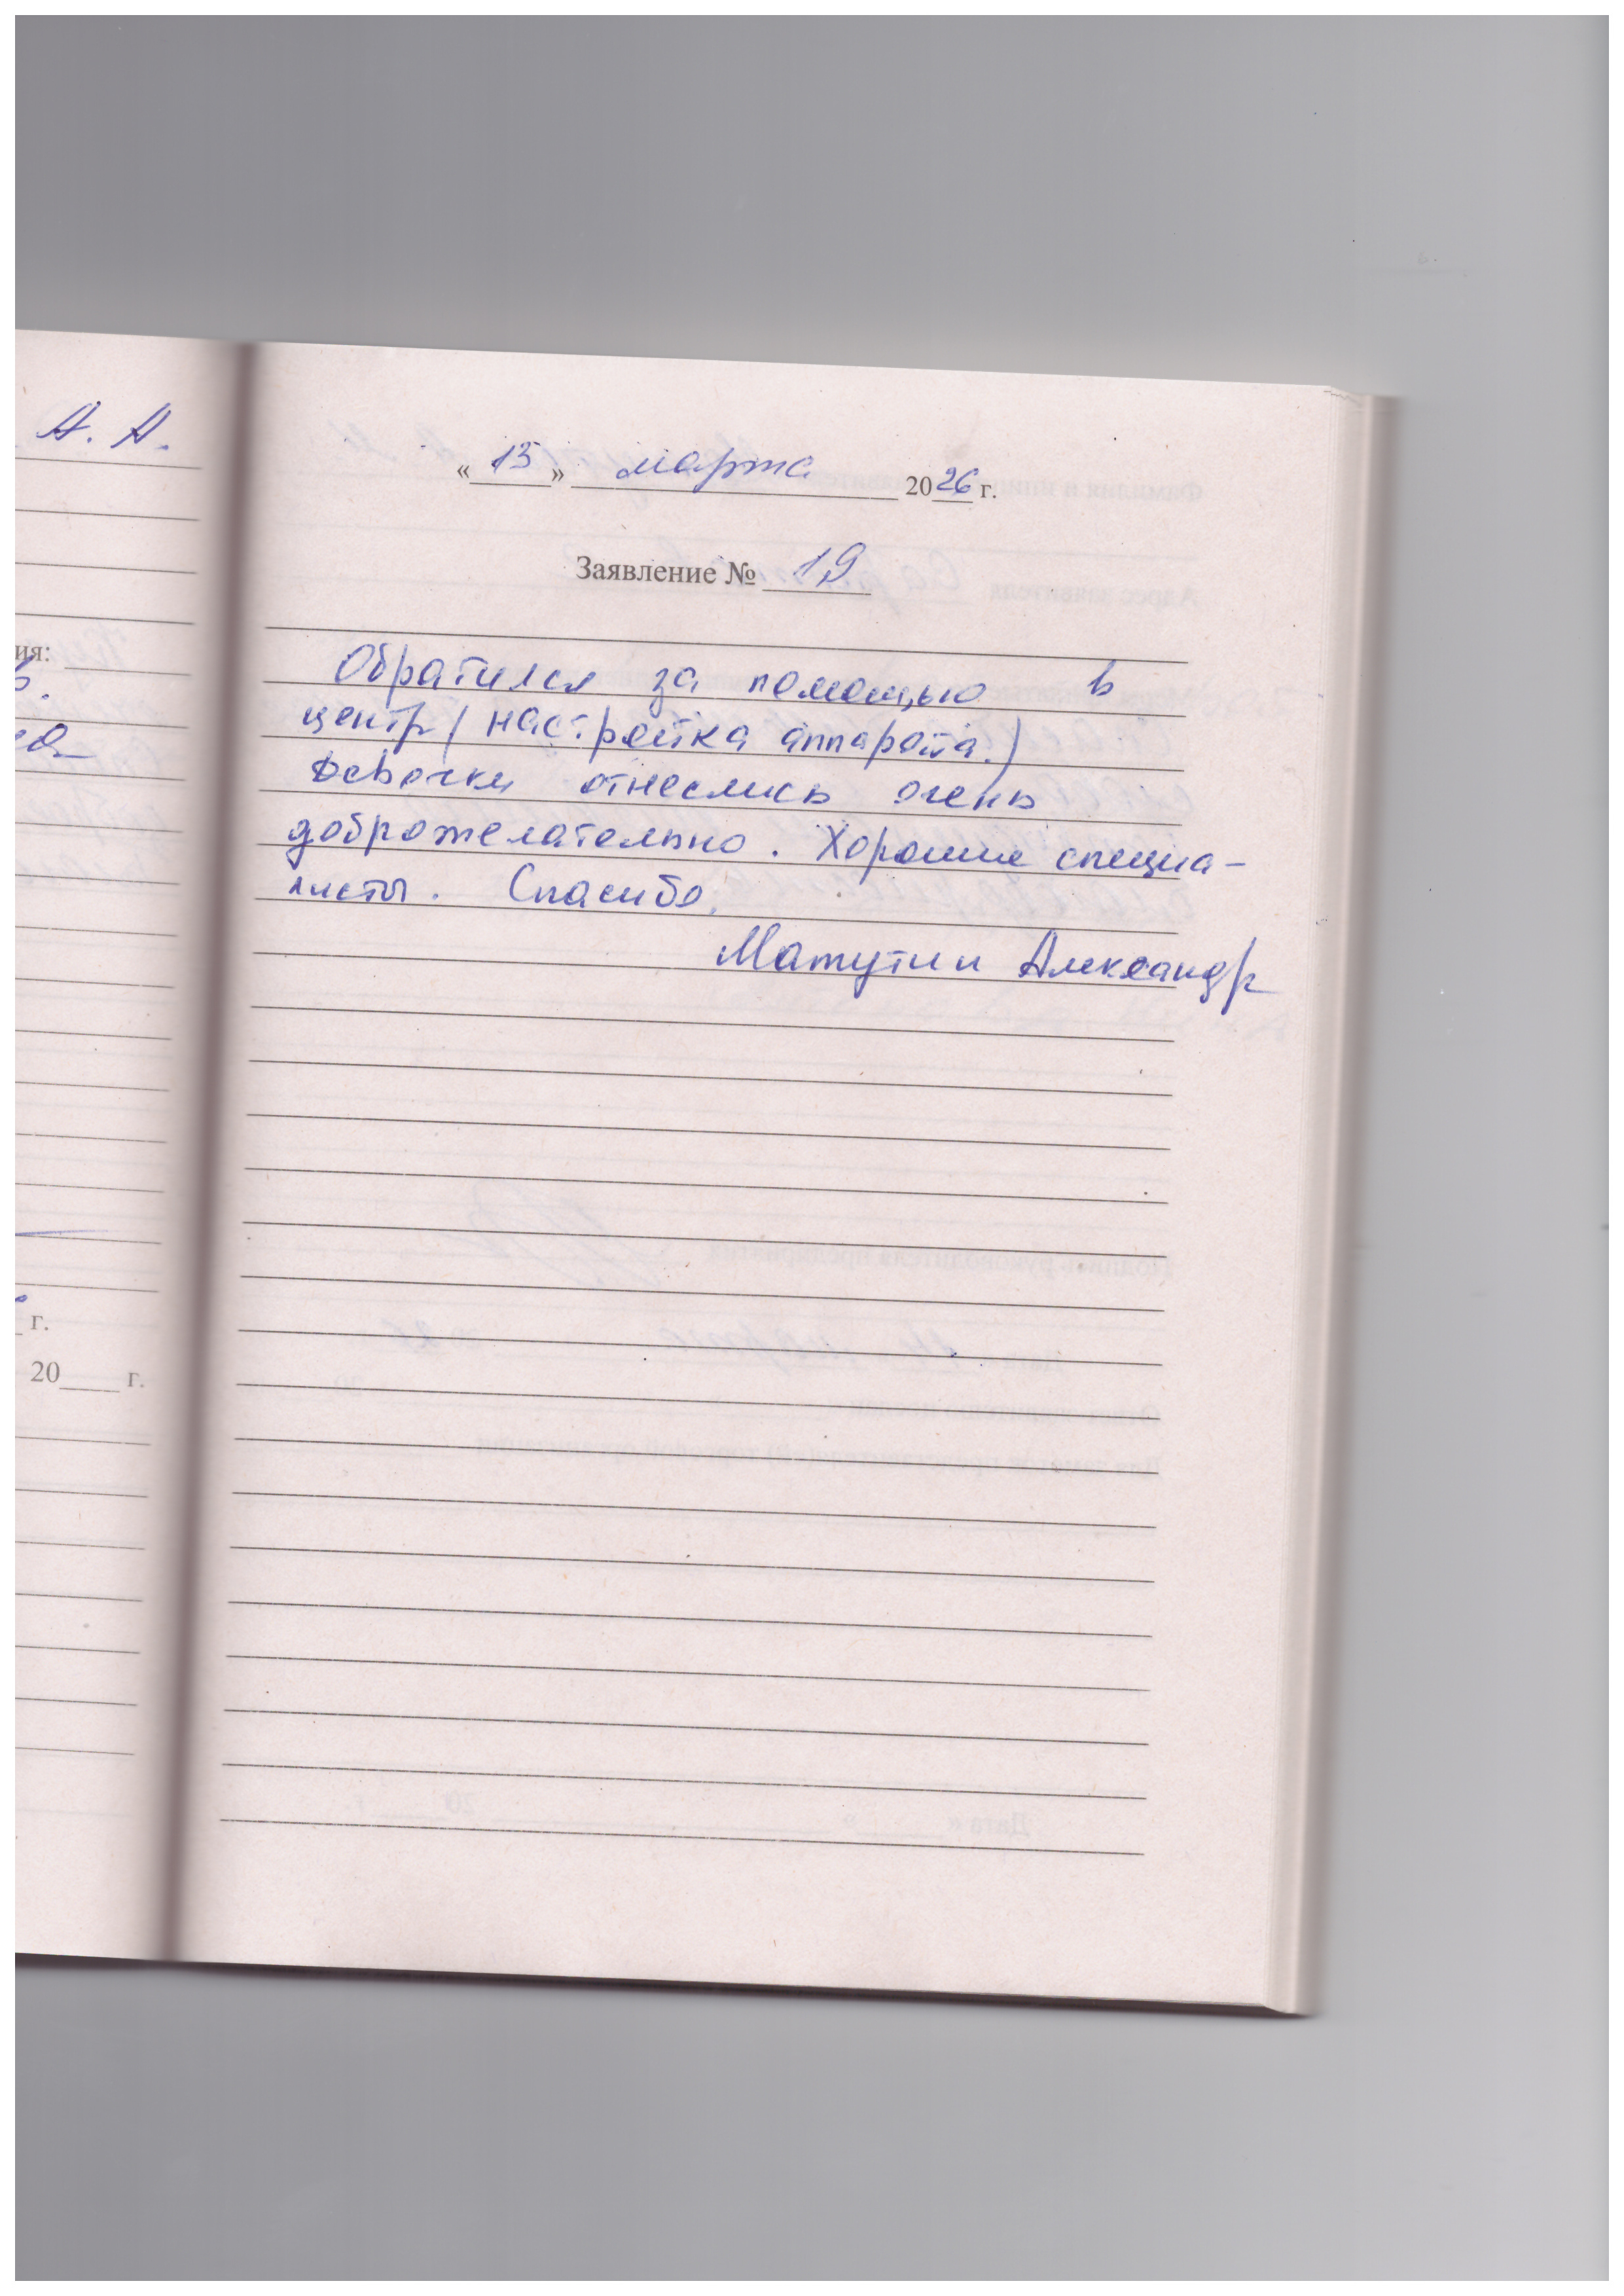 А. А.
«13» марта 2026 г.
Заявление № 19
ия:
Обратился за помощью в
центр (настройка аппарата.)
Девочки отнеслись очень
доброжелательно. Хорошие специа-
листы. Спасибо.
Матутин Александр
г.
20____ г.